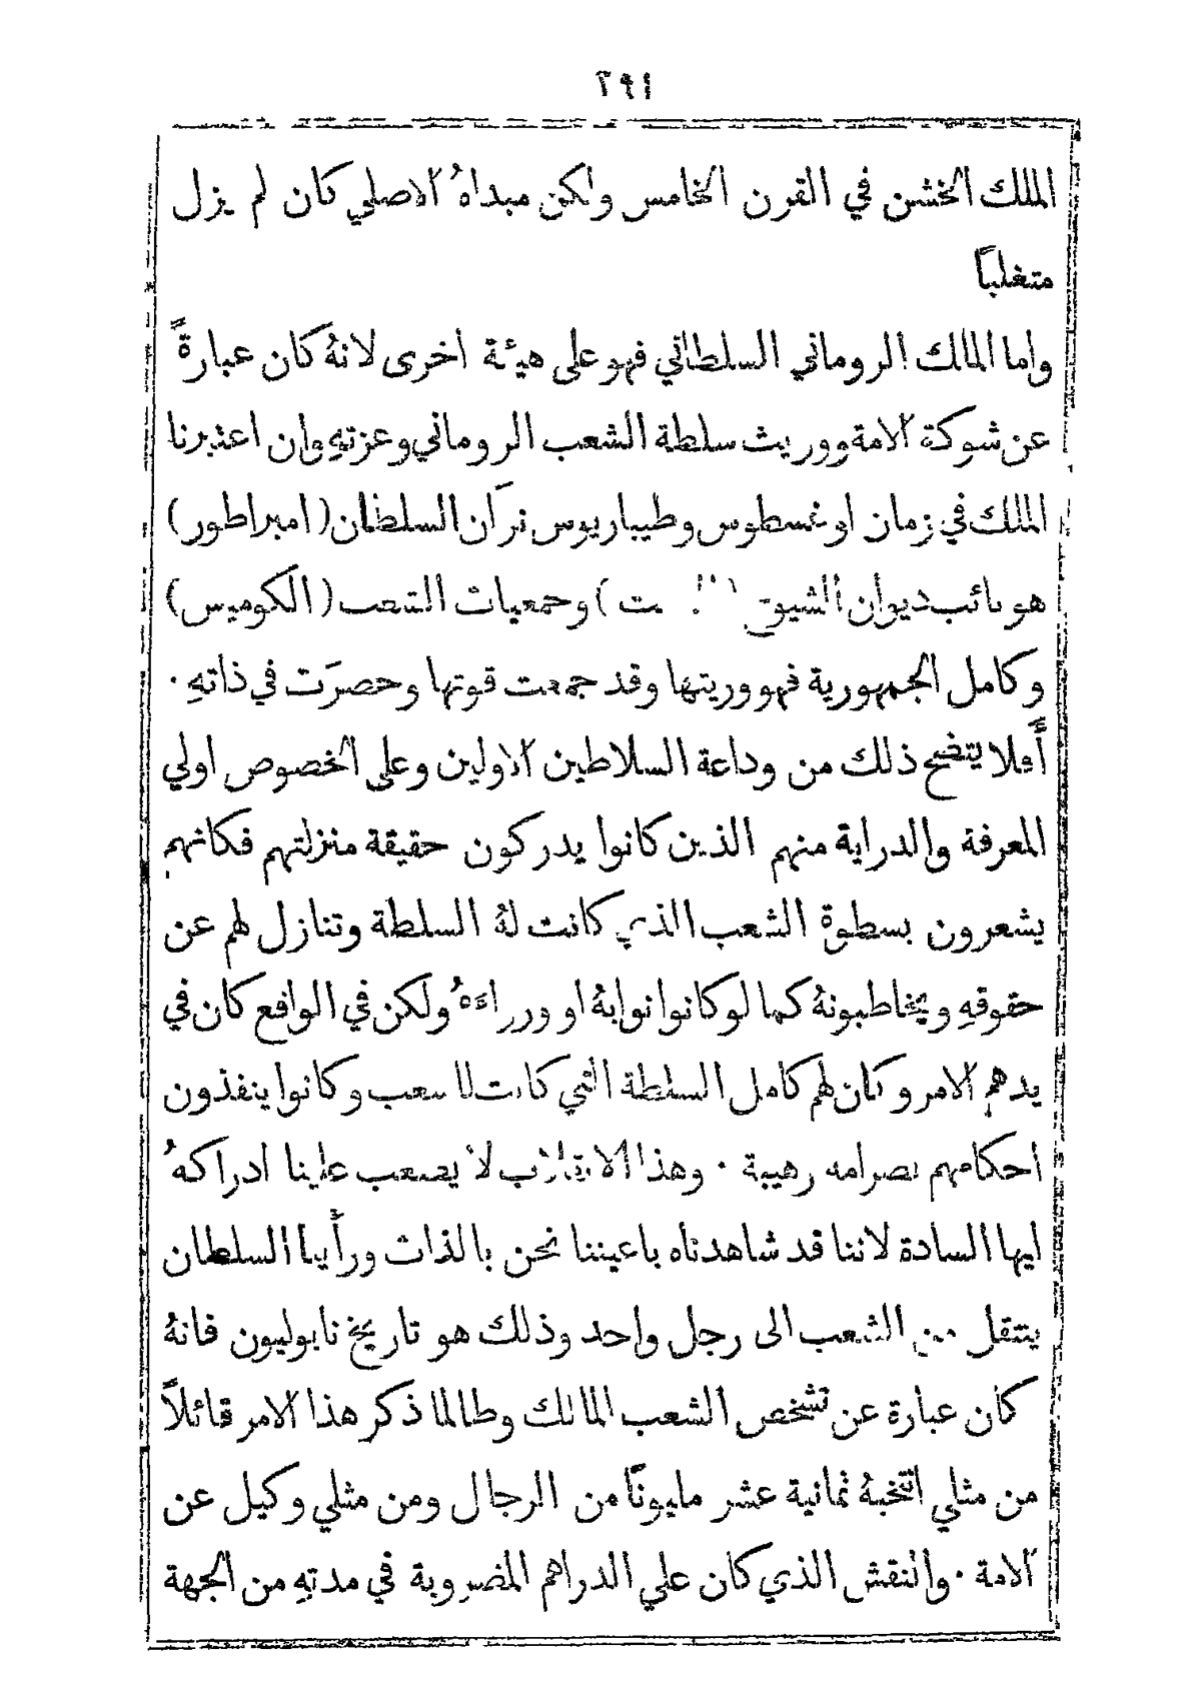 ٢٩١
الملك الخشن في القرن الخامس ولكن مبداهُ الاصلي كان لم يزل
متغلباً
واما المالك الروماني السلطاني فهو على هيئة اخرى لانهُ كان عبارةً
عن شوكة الامة ووريث سلطة الشعب الروماني وعزتهِ وان اعتبرنا
الملك في زمان اوغسطوس وطيباريوس نرَ ان السلطان (امبراطور)
هو نائب ديوان الشيوخ وجمعيات الشعب (الكوميس)
وكامل الجمهورية فهو وريثها وقد جمعت قوتها وحصرَت في ذاتهِ ·
أفلا يتضح ذلك من وداعة السلاطين الاولين وعلى الخصوص اولي
المعرفة والدراية منهم الذين كانوا يدركون حقيقة منزلتهم فكانهم
يشعرون بسطوة الشعب الذي كانت لهُ السلطة وتنازل لهم عن
حقوقهِ ويخاطبونهُ كما لو كانوا نوابهُ او وزراءَهُ ولكن في الواقع كان في
يدهم الامر وكان لهم كامل السلطة التي كانت للشعب وكانوا ينفذون
احكامهم بصرامه رهيبة · وهذا الانقلاب لا يصعب علينا ادراكهُ
ايها السادة لاننا قد شاهدناه باعيننا نحن بالذات ورأينا السلطان
ينتقل من الشعب الى رجل واحد وذلك هو تاريخ نابوليون فانهُ
كان عبارة عن تشخص الشعب المالك وطالما ذكر هذا الامر قائلاً
من مثلي انتخبهُ ثمانية عشر مليوناً من الرجال ومن مثلي وكيل عن
الامة · والنقش الذي كان علي الدراهم المضروبة في مدتهِ من الجهة